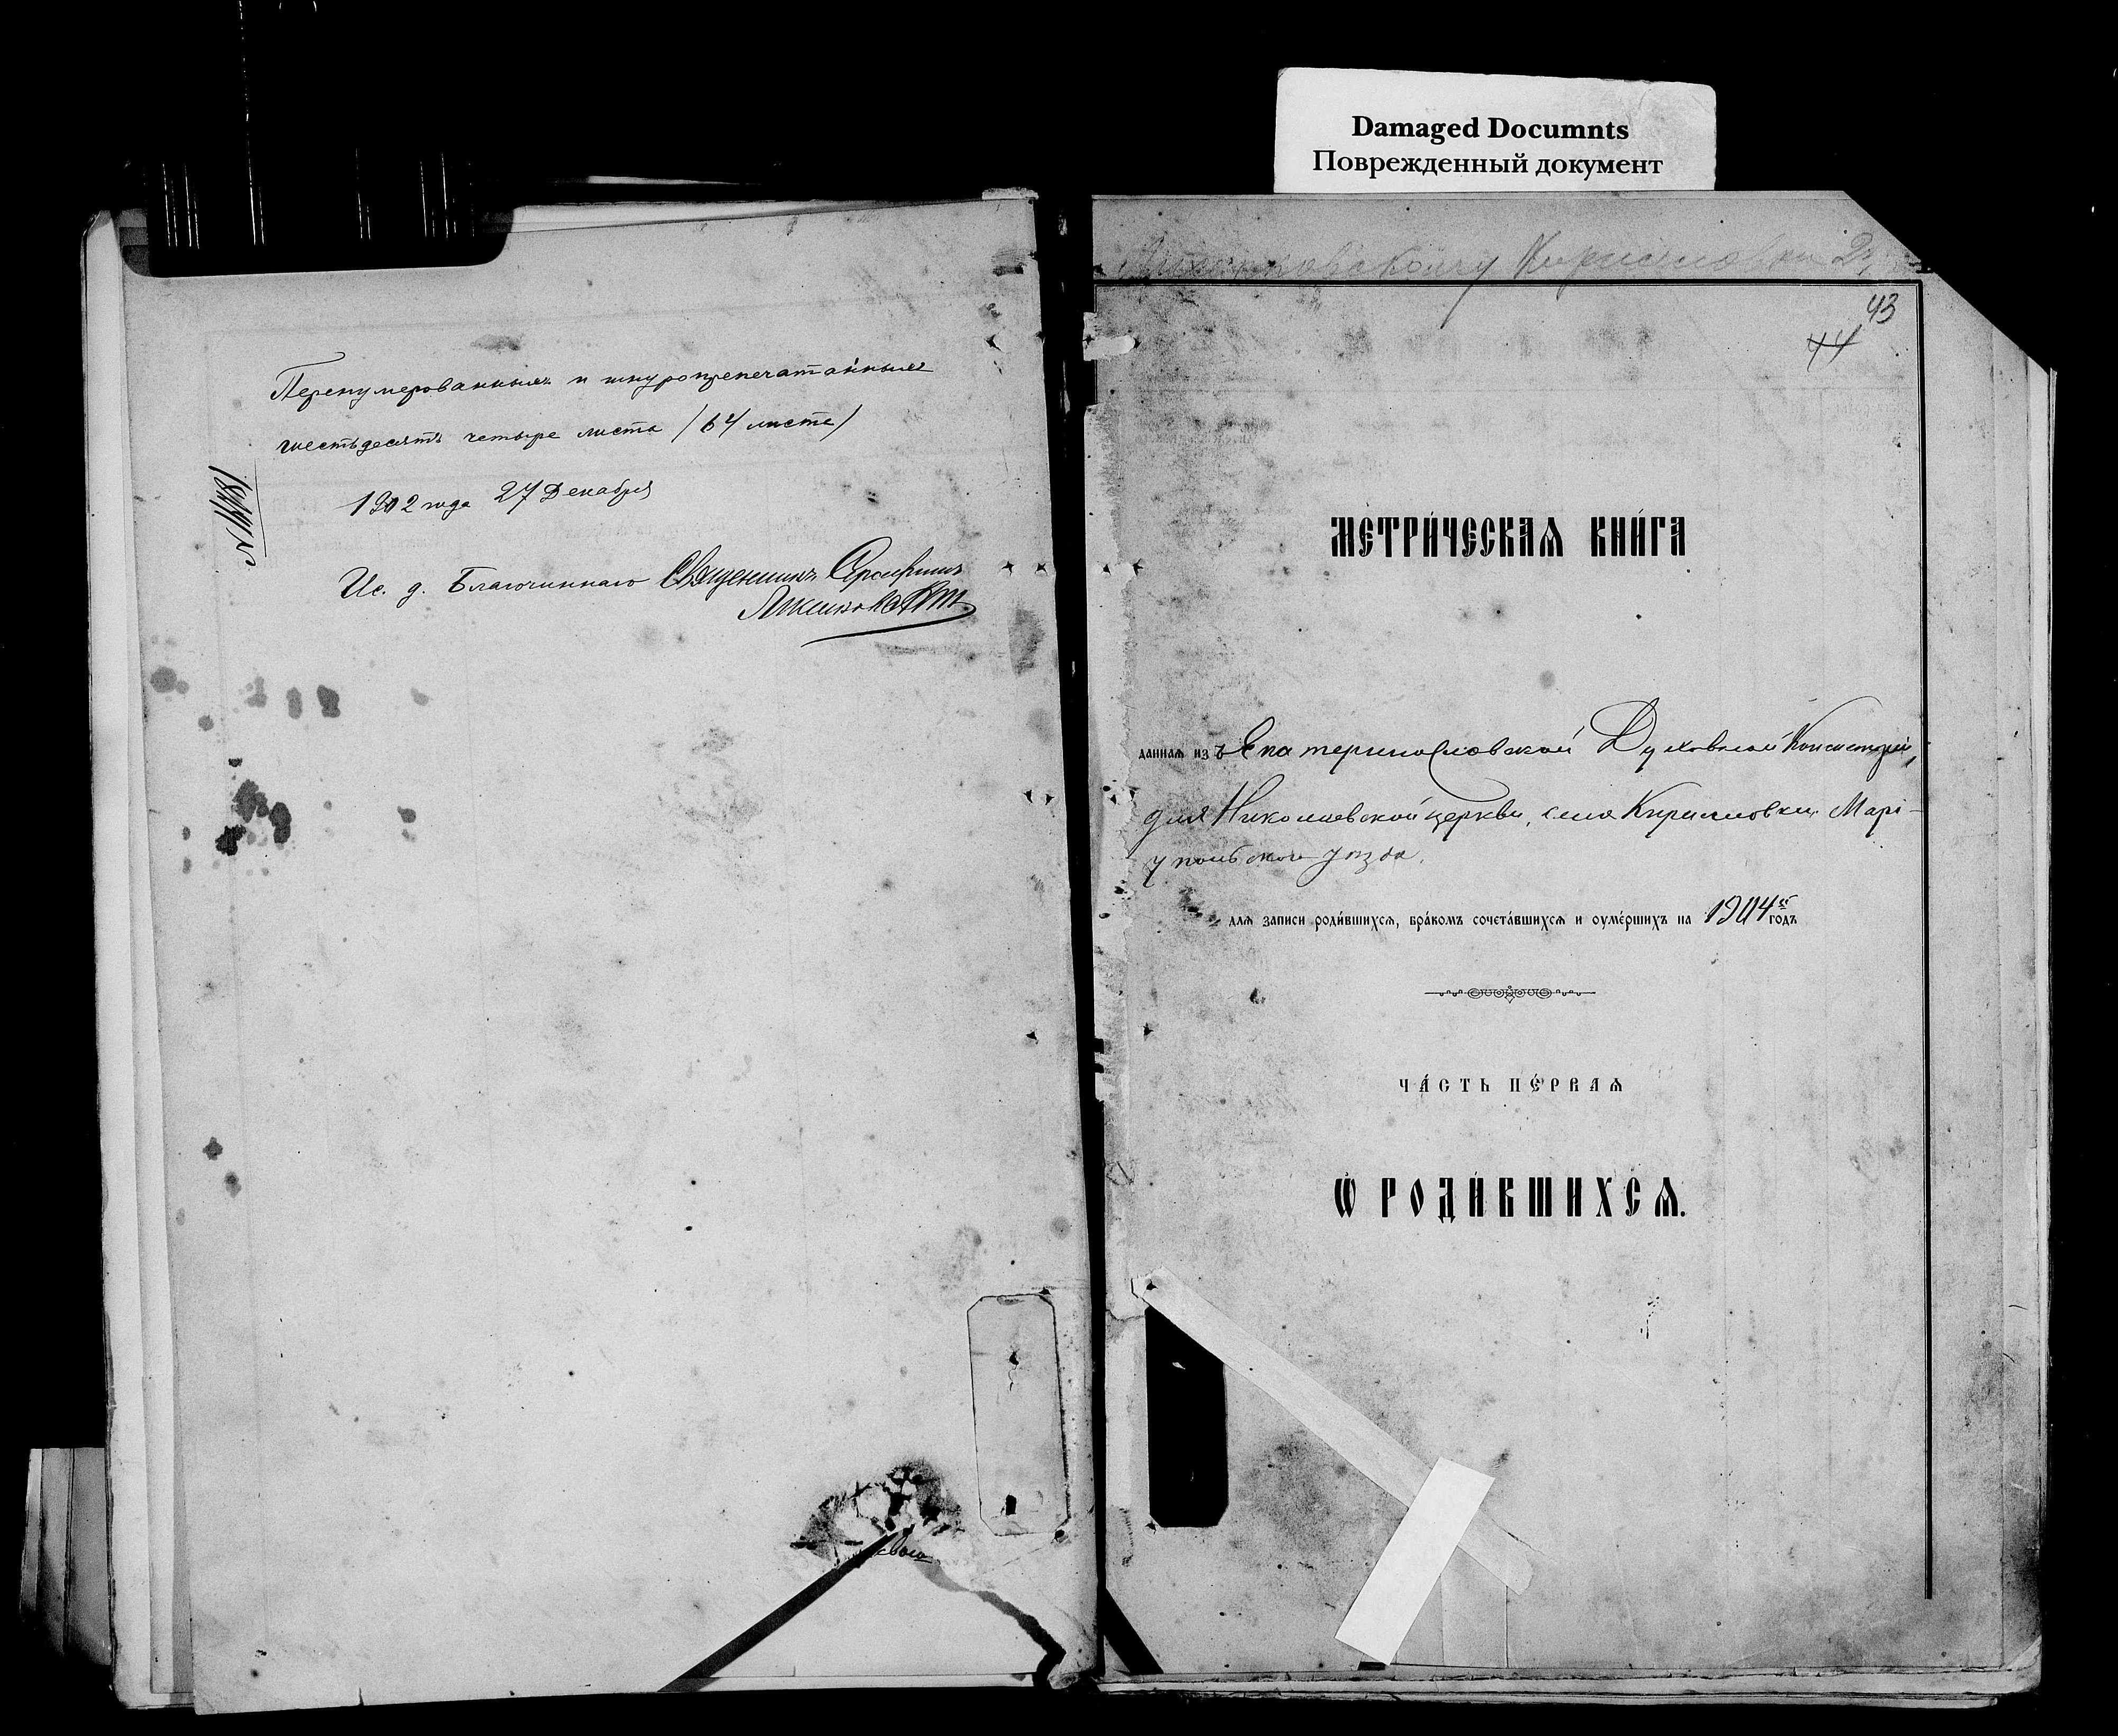 Damaged Documnts
Поврежденный документ
Перенумерованныхъ и шнуропрепечатанныхъ
шестьдесятъ четыре листа /64 листа/
1902 года 27 Декабря
Ис. д. Благочиннаго Священникъ
своего
Кирилловки
43
44
МЕТРИ́ЧЕСКАѦ КНИ́ГА
даннаѧ изъ Екатеринославской Духовной Консисторіи,
для Николаевской церкви, села Кирилловки, Марі-
упольскаго уѣзда,
длѧ записи роди́вшихсѧ, бра́комъ сочета́вшихсѧ и оуме́ршихъ на 1904й годъ
ЧА́СТЬ ПЕ́РВАѦ
Ѡ РОДИ́ВШИХСѦ.